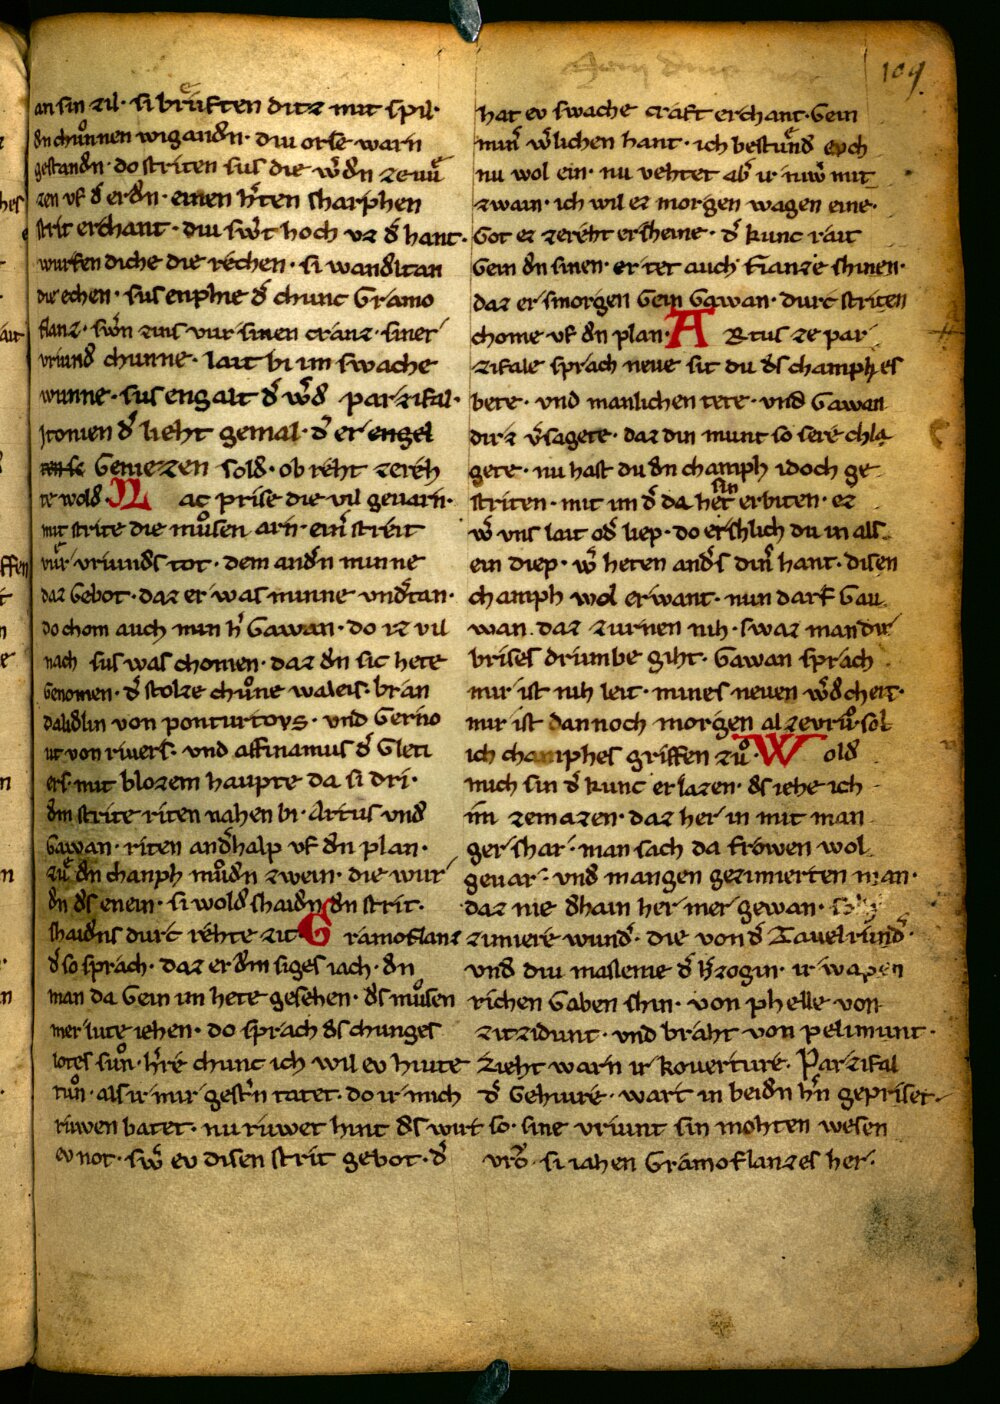 109.
an sin zil· si brůften ditz mit spil·
dn chůnnen wigandn· diu orse warn
gestandn· do striten sus die w̄dn ze vů
zen vf d̄ erdn· einen h̄ten sharphen
strit erchant· diu sw̄t hoch vz d̄ hant·
wurfen diche die rechen· si wandltan
die echen· sus enphie d̄ chunc Gramo
flanz· sw̄n zins vur sinen cranz· siner
vriund chunne· lait bi im swache
wunne· sus engalt d̄ w̄d parzifal·
Jtonien d̄ lieht gemal· d̄ er engel
ten se Geniezen sold· ob reht zereh
te wold· N ac prise die vil gevarn·
mit strite die můsen arn· ein̄ streit
vůr vriunds tot· dem andn̄ minne
daz Gebot· daz er was minne vnd̄tan·
do chom auch min h̄ Gawan· do iz vil
nach sus was chomen· daz dn sic hete
Genomen· d̄ stolze chůne waleis· bran
dalidlin von ponturtoys· vnd Gerno
ut von rivers· vnd affinamus d̄ Gleti
ers· mit blozem haupte da si dri·
dm strite riten nahen bi· Artus vnd
Gawan· riten andhalp vf dn plan·
zů dn chanph můdn zwein· die wur
dn ds enein· si wold shaidn dn strit·
shaidns durc rehte zit· G ramoflanz
d̄ so sprach· daz er dm siges iach· dn
man da Gein im hete gesehen· ds můsen
mer lute iehen· do sprach ds chunges
lotes sůn· h̄re chunc ich wil ev hiute
tůn· als ir mir gest̄n tatet· do ir mich
růwen batet· nu růwet hint ds wirt
ev not· sw̄ ev disen strit gebot· d̄
hat ev swache craft erchant· Gein
min̄ w̄lichen hant· ich bestůnd evch
nu wol ein· nu vehtet ab̄ ir niw̄ mit
zwain· ich wil ez morgen wagen eine·
Got ez zereht ersheine· d̄ kunc rait
Gein dn sinen· er tet auch fianze shinen·
daz er smorgen Gein Gawan· durc striten
chome vf dn plan· A Rtus ze par
zifale sprach neve sit du ds champhes
bete· vnd manlichen tete· vnd Gawan
dirz v̄sagete· daz din munt so sere chla
gete· nu hast du dn champh idoch ge
striten· mit im d̄ da het sin erbiten· ez
w̄ vns lait od̄ liep· do ershlich du in als
ein diep· w̄ heten and̄s din̄ hant· disen
champh wol erwant· nun darf Gau
wan· daz zurnen nih· swaz man dir
brises drumbe giht· Gawan sprach
mir ist nih leit· mines neven w̄dcheit·
mir ist dannoch morgen al zevrů· sol
ich champhes griffen zů· W old
mich sin d̄ kunc erlazen· ds iehe ich
im zemazen· daz her in mit man
ger shar· man sach da frowen wol
gevar· vnd mangen gezimierten man·
daz nie dhain her mer gewan·
zimiere wund̄· die von d̄ Tauelrund̄·
vnd diu masleme d̄ h̄zogin· ir wapen
richen Gaben shin· von phelle von
zitzidunt· und braht von pelimunt·
Zieht warn ir koverture· Parzifal
d̄ Gehiure· wart in beidn h̄n gepriset·
so· sine vriunt sin mohten wesen
vro· si iahen Gramoflanzes her·